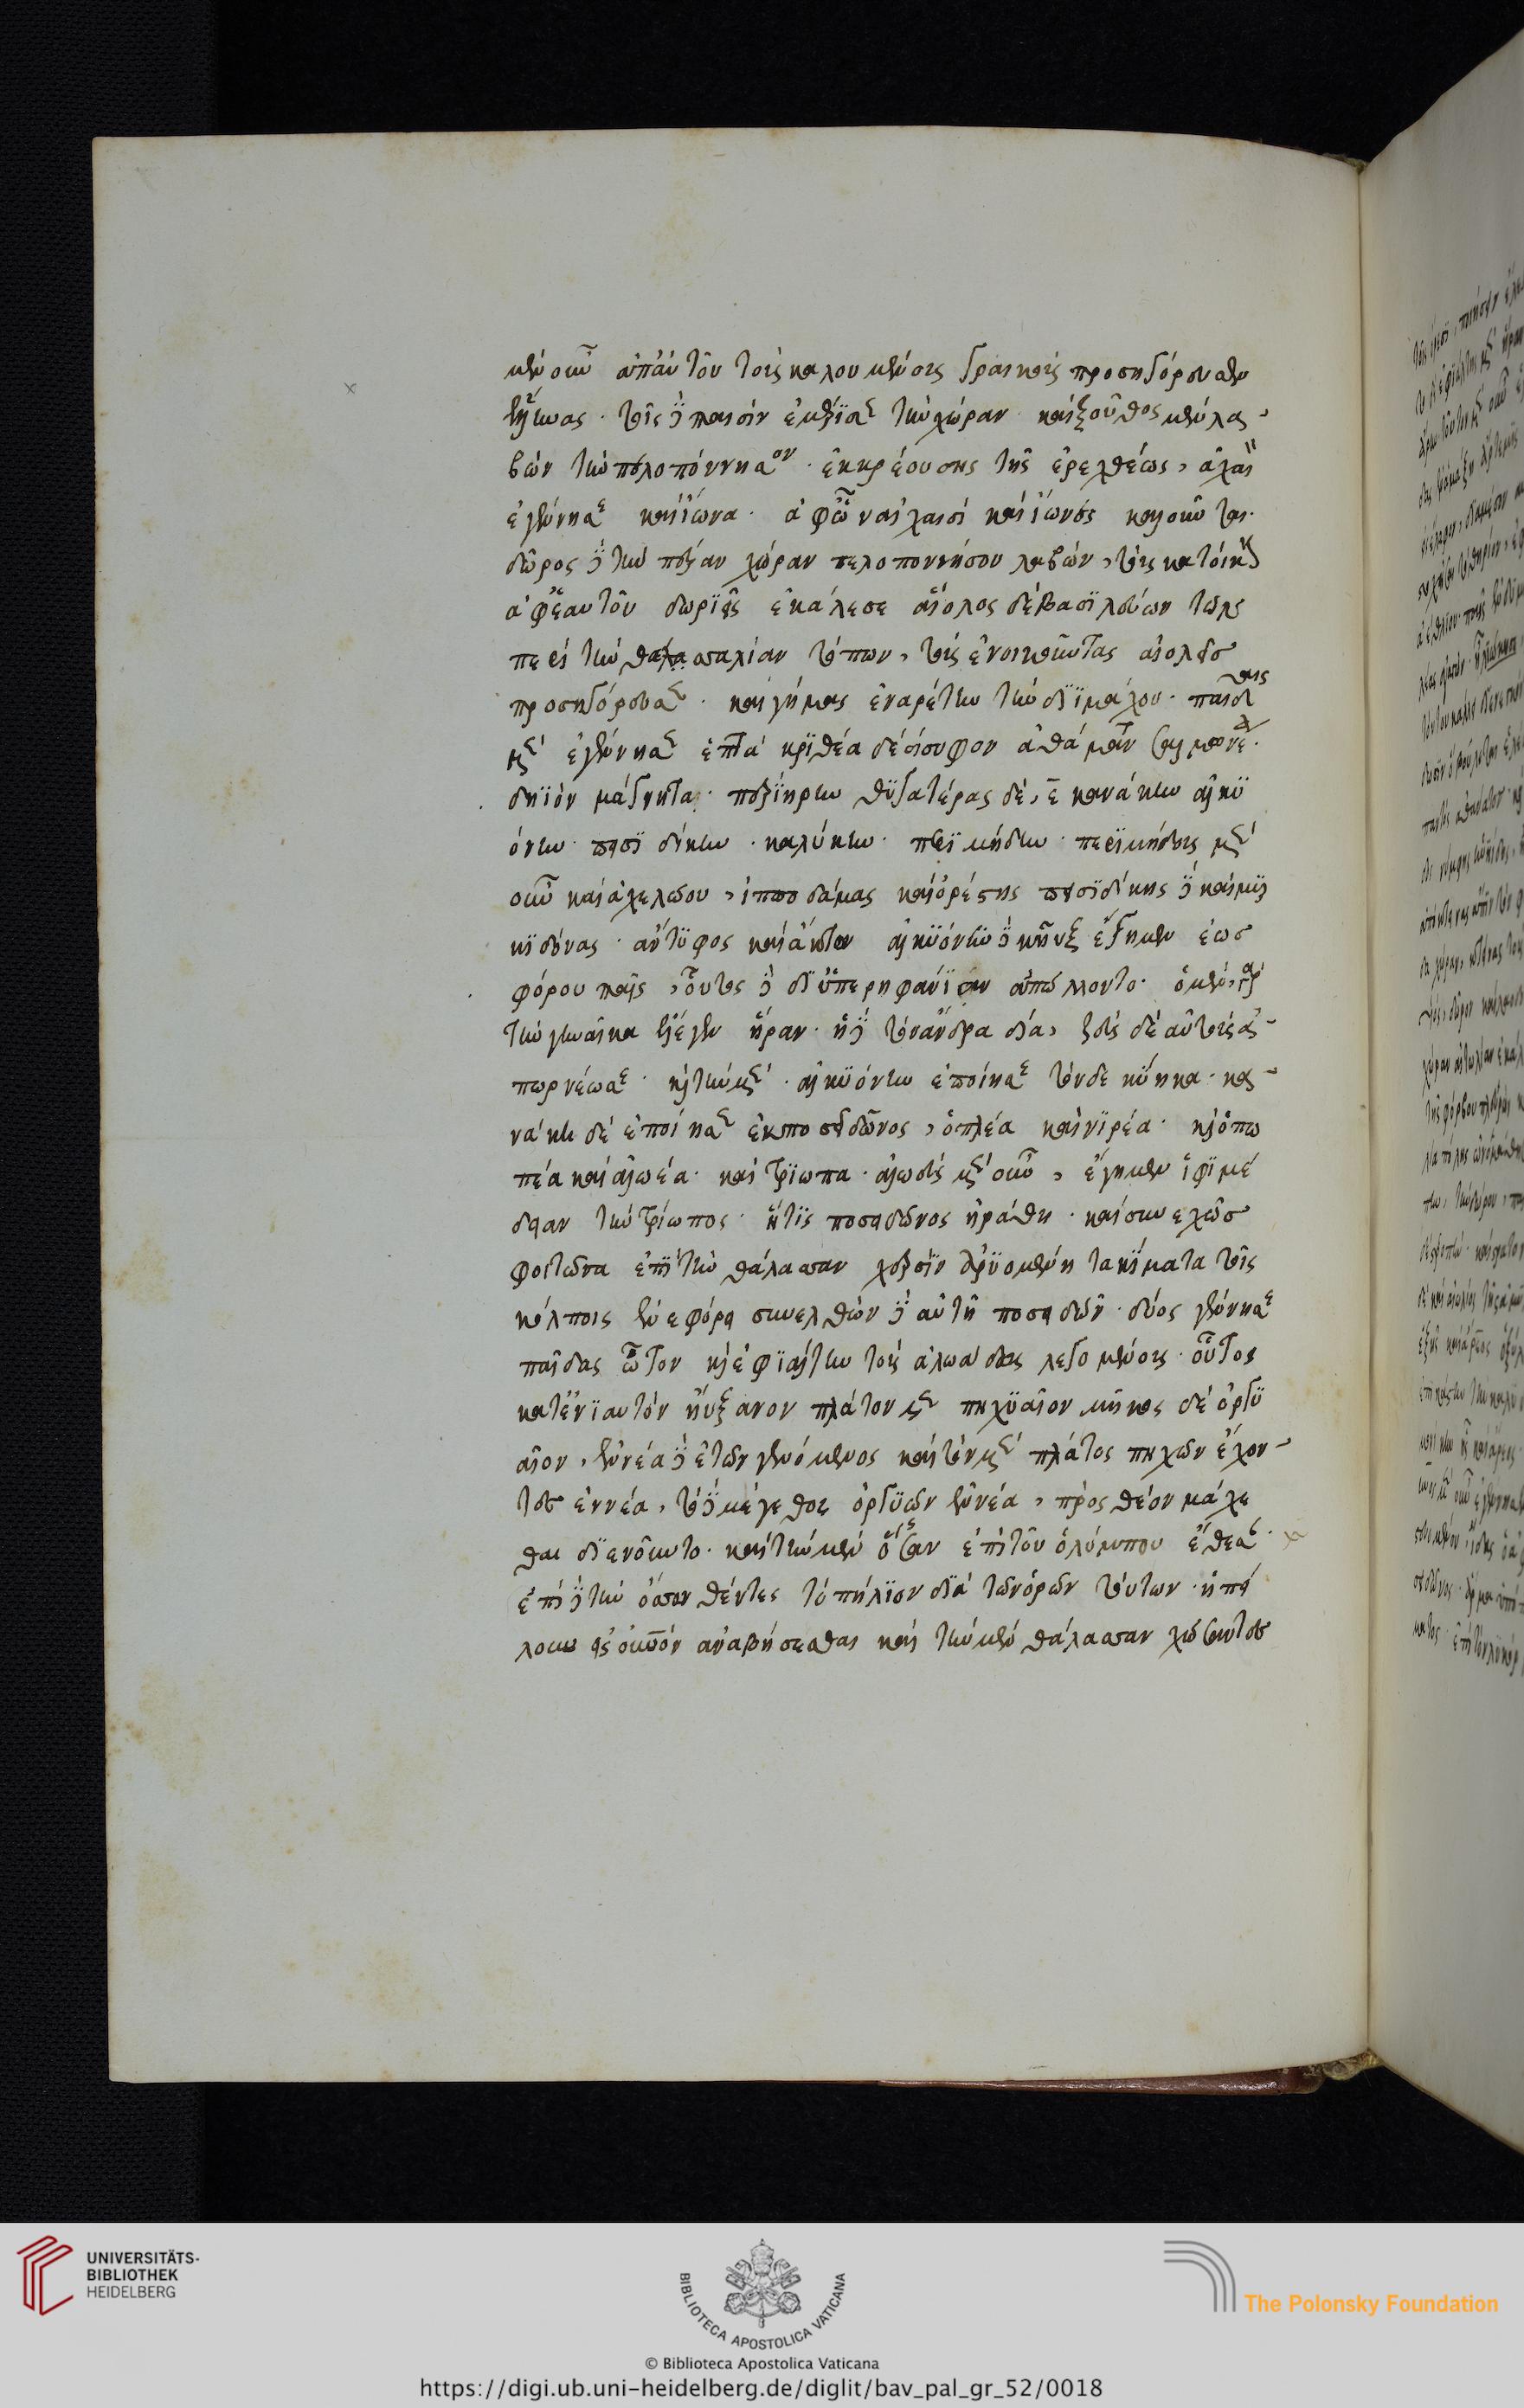 μὲν οὖν ἀπ' αὐτοῦ τοὺς καλουμένους γραικοὺς προσηγόρευσεν
ἕλληνας · τοῖς δὲ παισὶν ἐμέρισε τὴν χώραν · καὶ ξοῦθος μὲν λα-
βὼν τὴν πελοπόννησον · ἐκ κρεούσης τῆς ἐρεχθέως, ἀχαιὸν
ἐγέννησε καὶ ἴωνα · ἀφ' ὧν ἀχαιοὶ καὶ ἴωνες καλοῦνται ·
δῶρος δὲ τὴν πέραν χώραν πελοποννήσου λαβών, τοὺς κατοίκους
ἀφ' ἑαυτοῦ δωριεῖς ἐκάλεσε αἴολος δὲ βασιλεύων τῶν
περὶ τὴν θετταλίαν τόπων, τοὺς ἐνοικοῦντας αἰολεῖς
προσηγόρευσε · καὶ γήμας ἐναρέτην τὴν δηϊμάχου · παῖδας
μὲν ἐγέννησεν ἑπτὰ κριθέα σίσυφον ἀθάμαντα σαλμωνέα ·
δηϊόν μάγνητα · περιήρην θυγατέρας δὲ, ε κανάκην ἀλκυ
όνην · πεισιδίκην · καλύκην · περιμήδην · περιμήδους μὲν
οὖν καὶ ἀχελώου, ἱπποδάμας καὶ ὀρέστης πεισιδίκης δὲ καὶ μυρ
μιδόνος · ἄντυφος καὶ ἄκτωρ ἀλκυόνην δὲ κῆϋξ ἔγημεν ἑωσ
φόρου παῖς, οὗτος δὲ δι' ὑπερηφανίαν ἀπώλοντο · ὁ μὲν γὰρ
τὴν γυναῖκα ἔλεγεν ἥραν · ἡ δὲ τὸν ἄνδρα δία, ζεὺς δὲ αὐτοὺς ἀ-
πωρνέωσε · καὶ τὴν μὲν · ἀλκυόνην ἐποίησε τὸν δὲ κήϋκα · κα-
νάκη δὲ ἐποίησεν ἐκ ποσειδῶνος, ὁπλέα καὶ νιρέα · καὶ ὁπω
πέα καὶ ἀλωέα · καὶ τρίωπα · ἀλωεὺς μὲν οὖν, ἔγημεν ἰφιμέ
δειαν τὴν τρίωπος · ἥτις ποσειδῶνος ἠράσθη · καὶ συνεχῶς
φοιτῶσα ἐπὶ τὴν θάλασσαν χερσὶν ἀρυομένη τὰ κύματα τοῖς
κόλποις ἐνεφόρει συνελθὼν δὲ αὐτῇ ποσειδῶν · δύος γέννησε
παῖδας ὦτον καὶ ἐφιάλτην τοὺς ἀλωάδας λεγομένους · οὗτος
κατ' ἐνιαυτὸν ηὔξανον πλάτον μὲν πηχυαῖον μῆκος δὲ ὀργυ
αῖον, ἐννέα δὲ ἐτῶν γενόμενος καὶ τὸν μὲν πλάτος πηχῶν ἔχον-
τες ἐννέα, τὸ δὲ μέγεθος ὀργυιῶν ἐννέα, πρὸς θεὸν μάχε
σθαι διενοοῦντο · καὶ τὴν μὲν ὄσσαν ἐπὶ τοῦ ὀλύμπου ἔθεσαν ·
ἐπὶ δὲ τὴν ὄσσαν θέντες τὸ πήλιον διὰ τῶν ὀρῶν τούτων · ἠπεί
λουν εἰς οὐρανὸν ἀναβήσεσθαι καὶ τὴν μὲν θάλασσαν χώσαντες
UNIVERSITÄTS-
BIBLIOTHEK
HEIDELBERG
BIBLIOTECA APOSTOLICA VATICANA
The Polonsky Foundation
© Biblioteca Apostolica Vaticana
https://digi.ub.uni-heidelberg.de/diglit/bav_pal_gr_52/0018